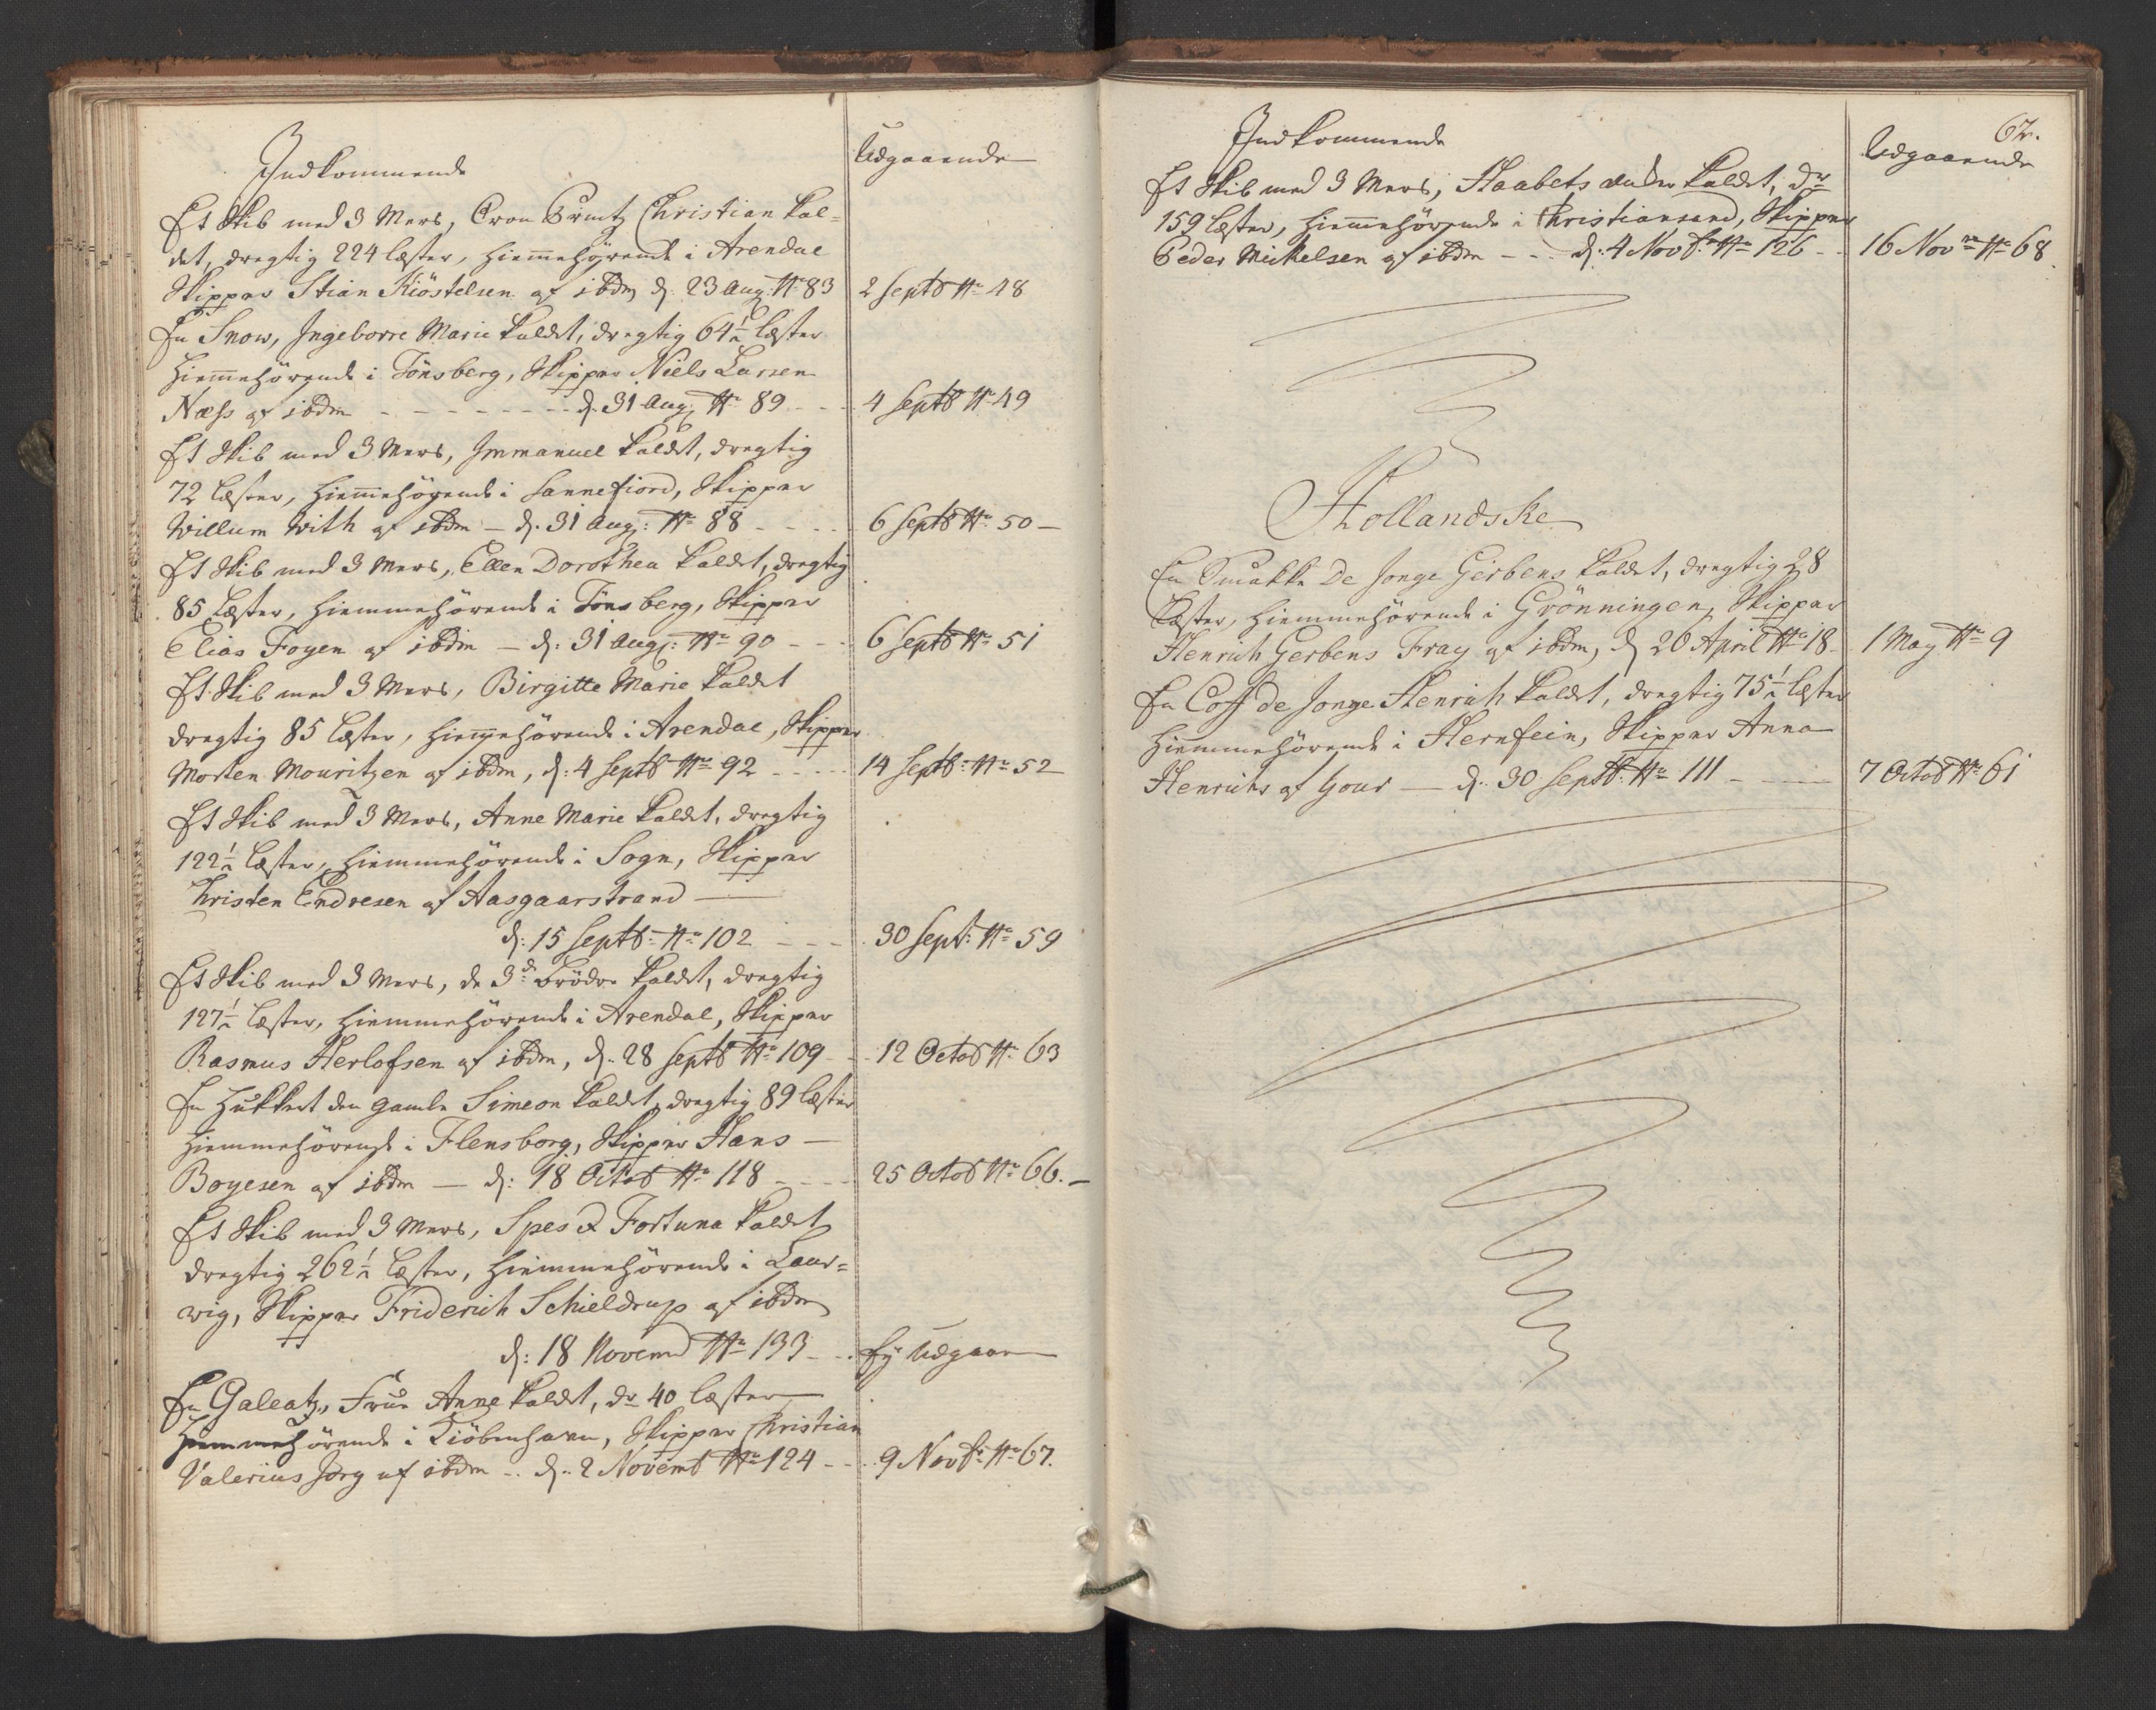 Indkommende
Udgaaende
Et Skib med 3 Mers, Cron Printz Christian kal=
det, dregtig 224 læster, hiem̄ehörende i Arendal
Skipper Stian Kiöstelsen af ibdm d: 23 Aug: No 83
2 Septb No 48
En Snow, Ingeborre Marie kaldet, dregtig 64½ læster
hiem̄ehörende i Tönsberg, Skipper Niels Larsen
Næss af ibdm - - - - - - - d: 31 Aug: No 89 - - -
4 Septb No 49
Et Skib med 3 Mers, Immanuel kaldet, dregtig
72 læster, hiem̄ehörende i Sannefiord, Skipper
Willum With af ibdm — d: 31 Aug: No 88 - - - -
6 Septb No 50 —
Et Skib med 3 Mers, Ellen Dorothea kaldet, dregtig
85 læster, hiemmehörende i Tönsberg, Skipper
Elias Foyen af ibdm — d: 31 Aug: No 90 - - -
6 Septb No 51
Et Skib med 3 Mers, Birgitte Marie kaldet
dregtig 85 læster, hiem̄ehörende i Arendal, Skipper
Morten Mouritzen af ibdm, d: 4 Septb No 92 - - - - -
14 Septb: No 52 —
Et Skib med 3 Mers, Anne Marie kaldet, dregtig
122½ læster, hiemmehörende i Sogn, Skipper
Christen Endresen af Aasgaarstrand —
d: 15 Septb: No 102 - - - -
30 Sept: No 59
Et Skib med 3 Mers, de 3de Brödre kaldet, dregtig
127½ læster, hiemmehörende i Arendal, Skipper
Rasmus Herlofsen af ibdm, d: 28 Septb No 109 - -
12 Octob No 63
En Hukkert den gamle Simeon kaldet, dregtig 89 læster
hiemmehörende i Flensborg, Skipper Hans —
Boyesen af ibdm — d: 18 Octob No 118 - - - -
25 Octob No 66. —
Et Skib med 3 Mers, Spes & Fortuna kaldet
dregtig 262½ læster, hiemmehörende i Laur=
wig, Skipper Friderich Schieldrup af ibdm
d: 18 Novemb No 133 - - -
Ey Udgaaen
En Galeatz, Frue Anne kaldet, dr 40 læster
hiemmehörende i Kiöbenhavn, Skipper Christian
Valerius Jörg af ibdm - - d: 2 Novemb No 124 - - -
9 Novbr: No 67.
62.
Indkommende
Udgaaende
Et Skib med 3 Mers, Haabets Anker kaldet, dr
159 læster, hiem̄ehörende i Christiansand, Skipper
Peder Mickelsen af ibdm - - - d: 4 Novbr: No 126 - -
16 Novbr No 68.
Hollandske
En Smakke De Jonge Gerbens kaldet, dregtig 28
læster, hiemmehörende i Grönningen, Skipper
Henrich Gerbens Fray af ibdm, d: 20 April No 18 -
1 May No 9
En Coff de Jonge Henrich kaldet, dregtig 75½ læster
hiemmehörende i Skipper Anna
Henrichs af — d: 30 Septb: No 111 - —
7 Octob No 61